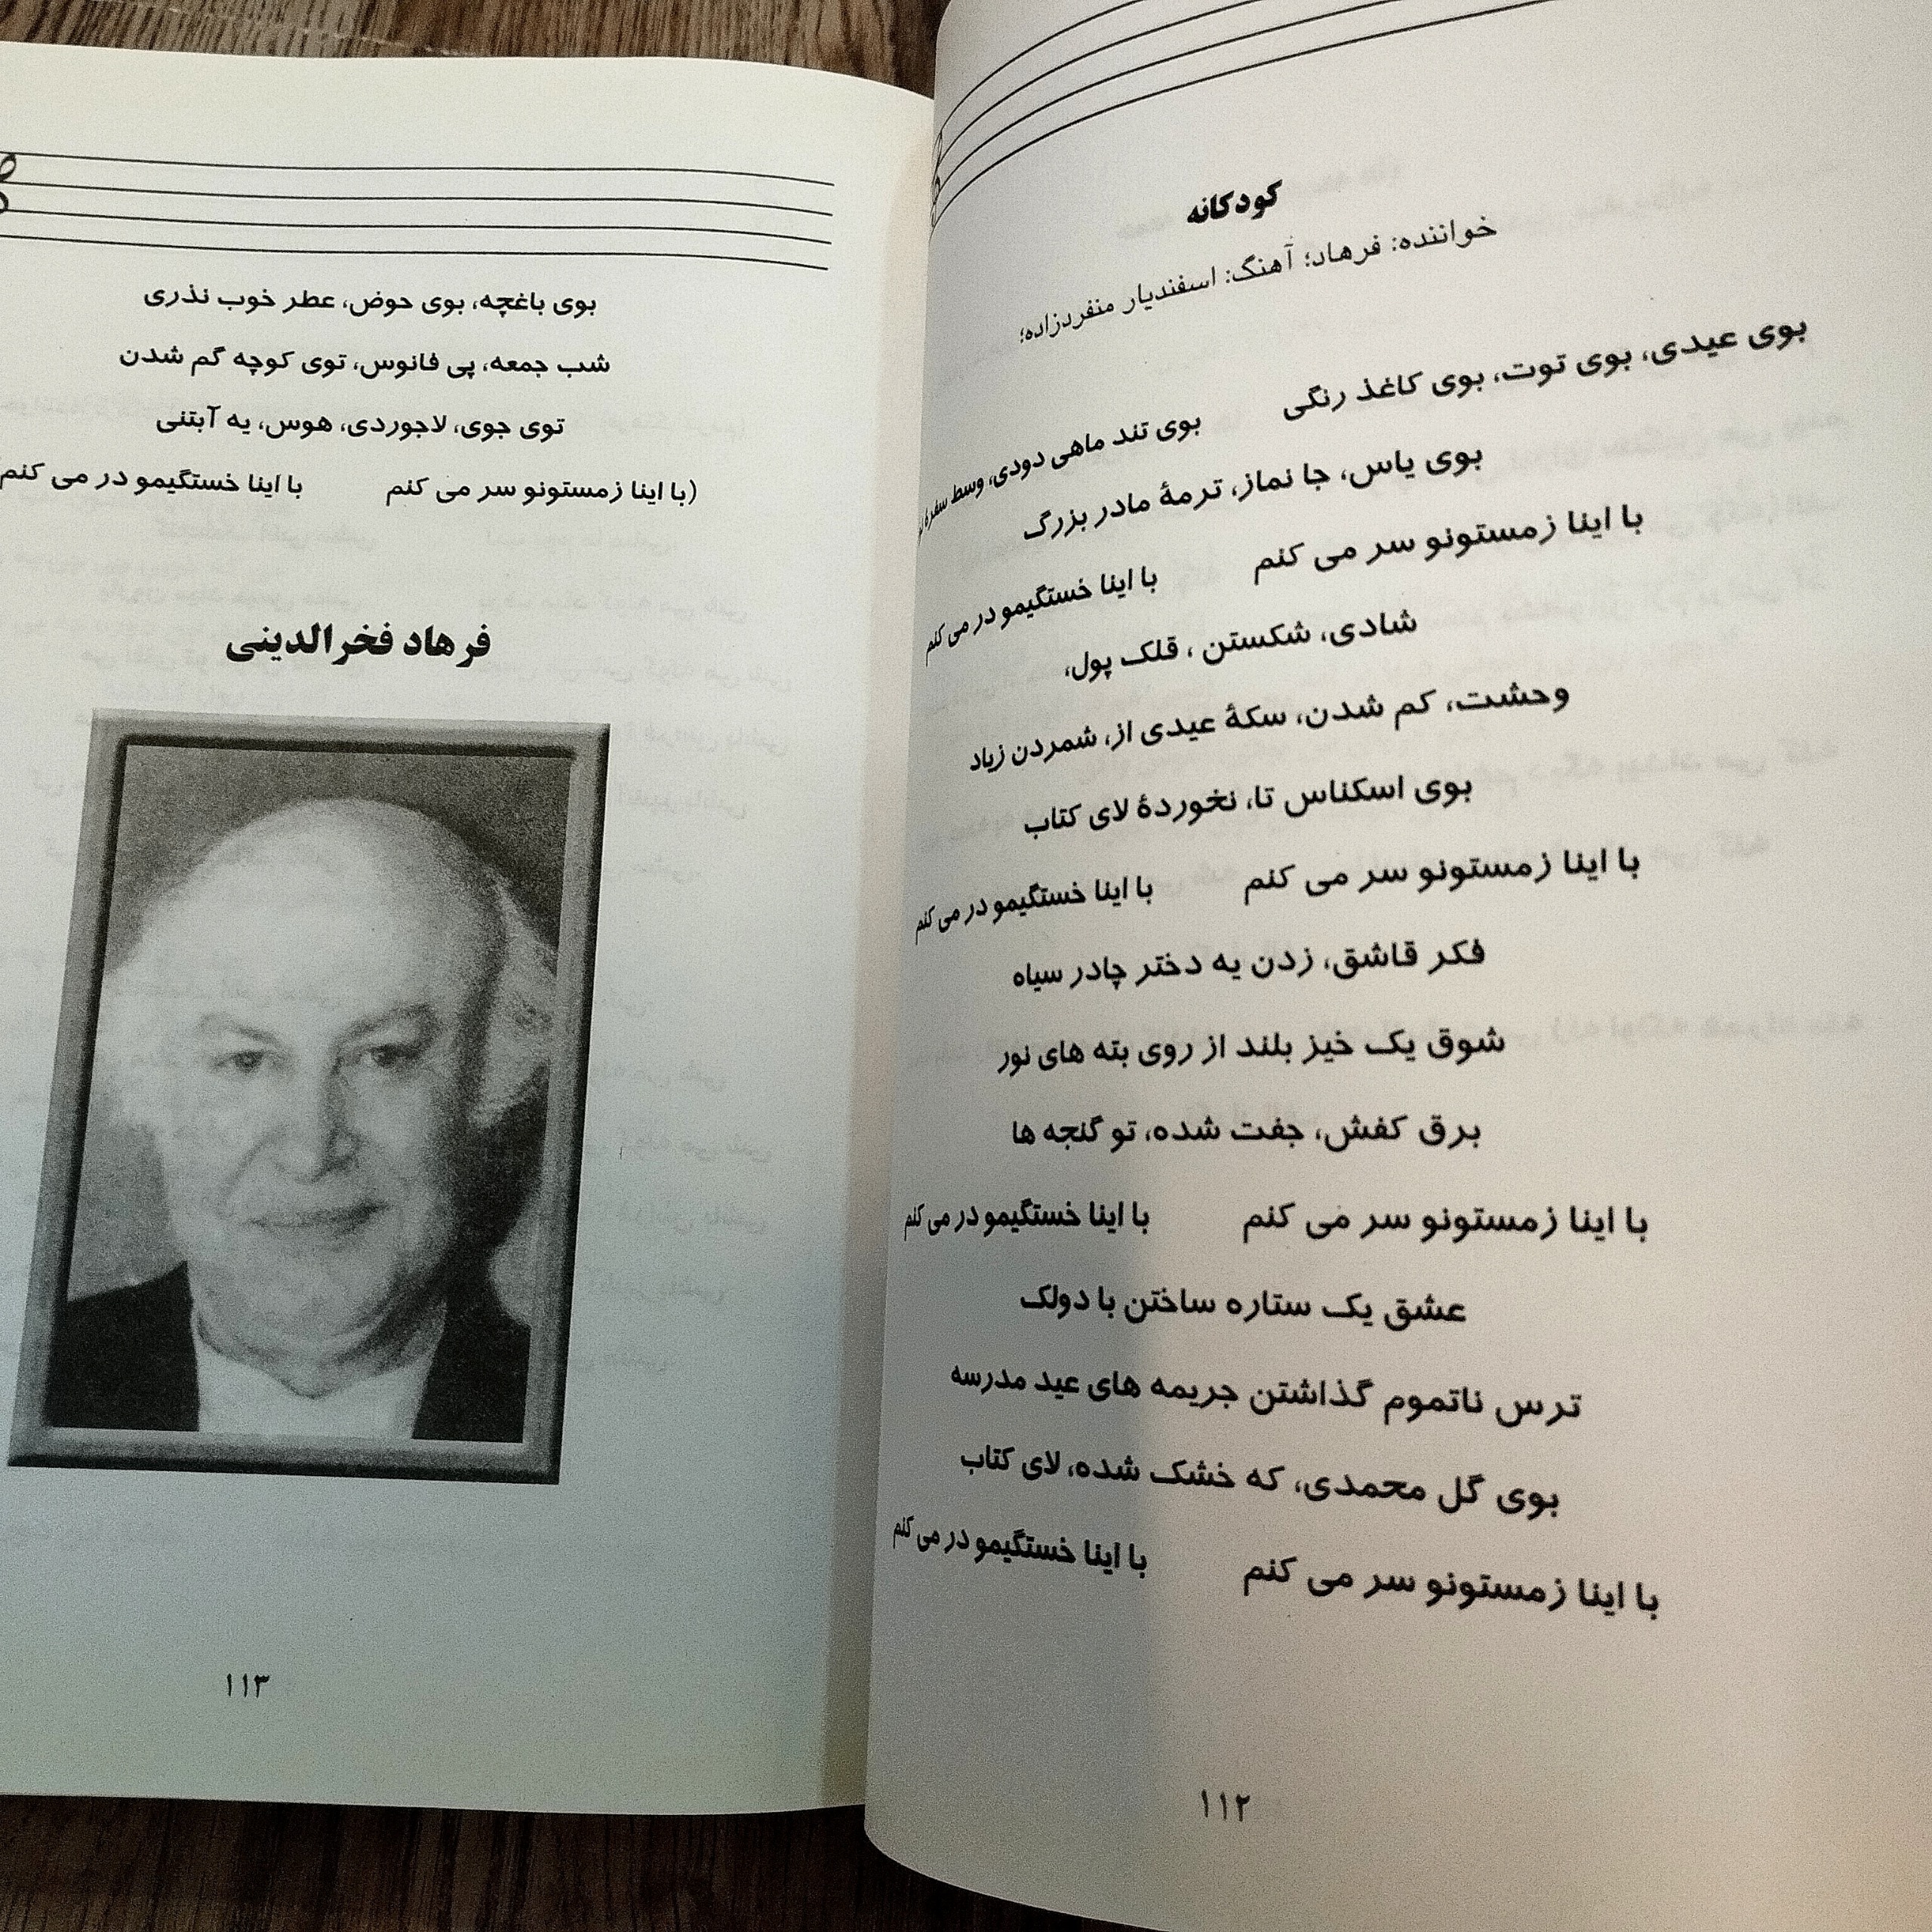 کودکانه
خواننده: فرهاد؛ آهنگ: اسفندیار منفردزاده؛
بوی عیدی، بوی توت، بوی کاغذ رنگی
بوی تند ماهی دودی، وسط سفرۀ
بوی یاس، جا نماز، ترمۀ مادر بزرگ
با اینا زمستونو سر می کنم با اینا خستگیمو در می کنم
شادی، شکستن ، قلک پول،
وحشت، کم شدن، سکۀ عیدی از، شمردن زیاد
بوی اسکناس تا، نخوردۀ لای کتاب
با اینا زمستونو سر می کنم با اینا خستگیمو در می کنم
فکر قاشق، زدن یه دختر چادر سیاه
شوق یک خیز بلند از روی بته های نور
برق کفش، جفت شده، تو گنجه ها
با اینا زمستونو سر می کنم با اینا خستگیمو در می کنم
عشق یک ستاره ساختن با دولک
ترس ناتموم گذاشتن جریمه های عید مدرسه
بوی گل محمدی، که خشک شده، لای کتاب
با اینا زمستونو سر می کنم با اینا خستگیمو در می کنم
۱۱۲
بوی باغچه، بوی حوض، عطر خوب نذری
شب جمعه، پی فانوس، توی کوچه گم شدن
توی جوی، لاجوردی، هوس، یه آبتنی
(با اینا زمستونو سر می کنم با اینا خستگیمو در می کنم
فرهاد فخرالدینی
۱۱۳